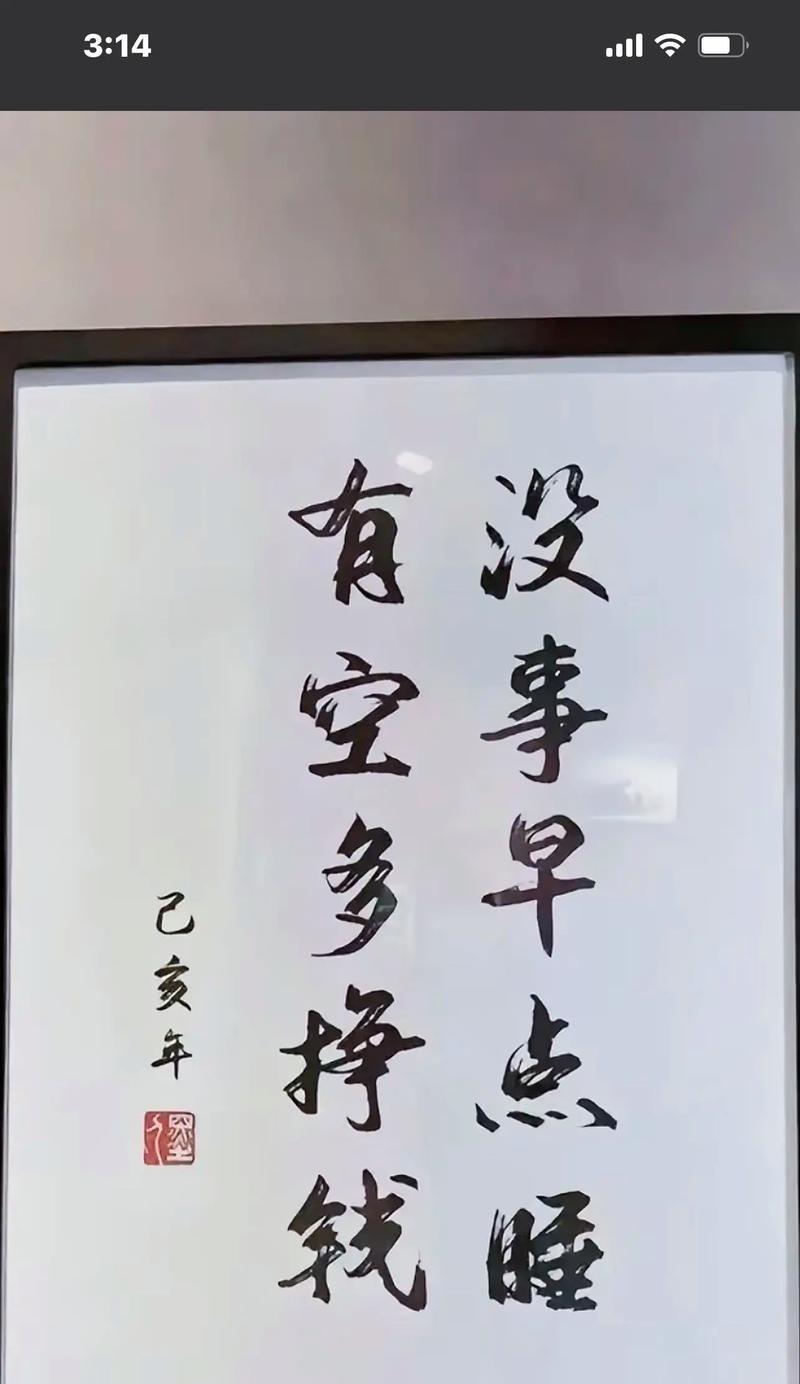 3:14
没事早点睡
有空多挣钱
己亥年